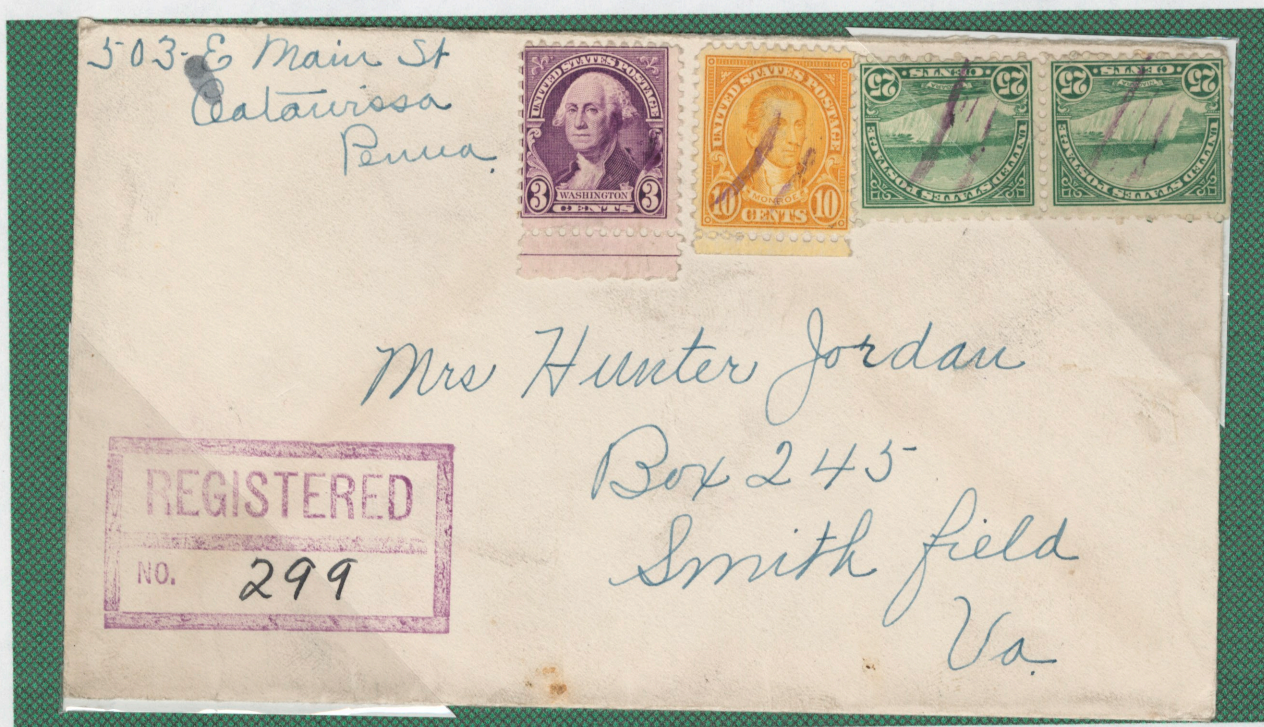 503-E Main St
Catawissa
Penna.
UNITED STATES POSTAGE
3 WASHINGTON 3
CENTS
UNITED STATES POSTAGE
MONROE
10 CENTS 10
UNITED STATES POSTAGE
25 CENTS 25
UNITED STATES POSTAGE
25 CENTS 25
Mrs Hunter Jordan
Box 245
Smith field
Va.
REGISTERED
NO. 299